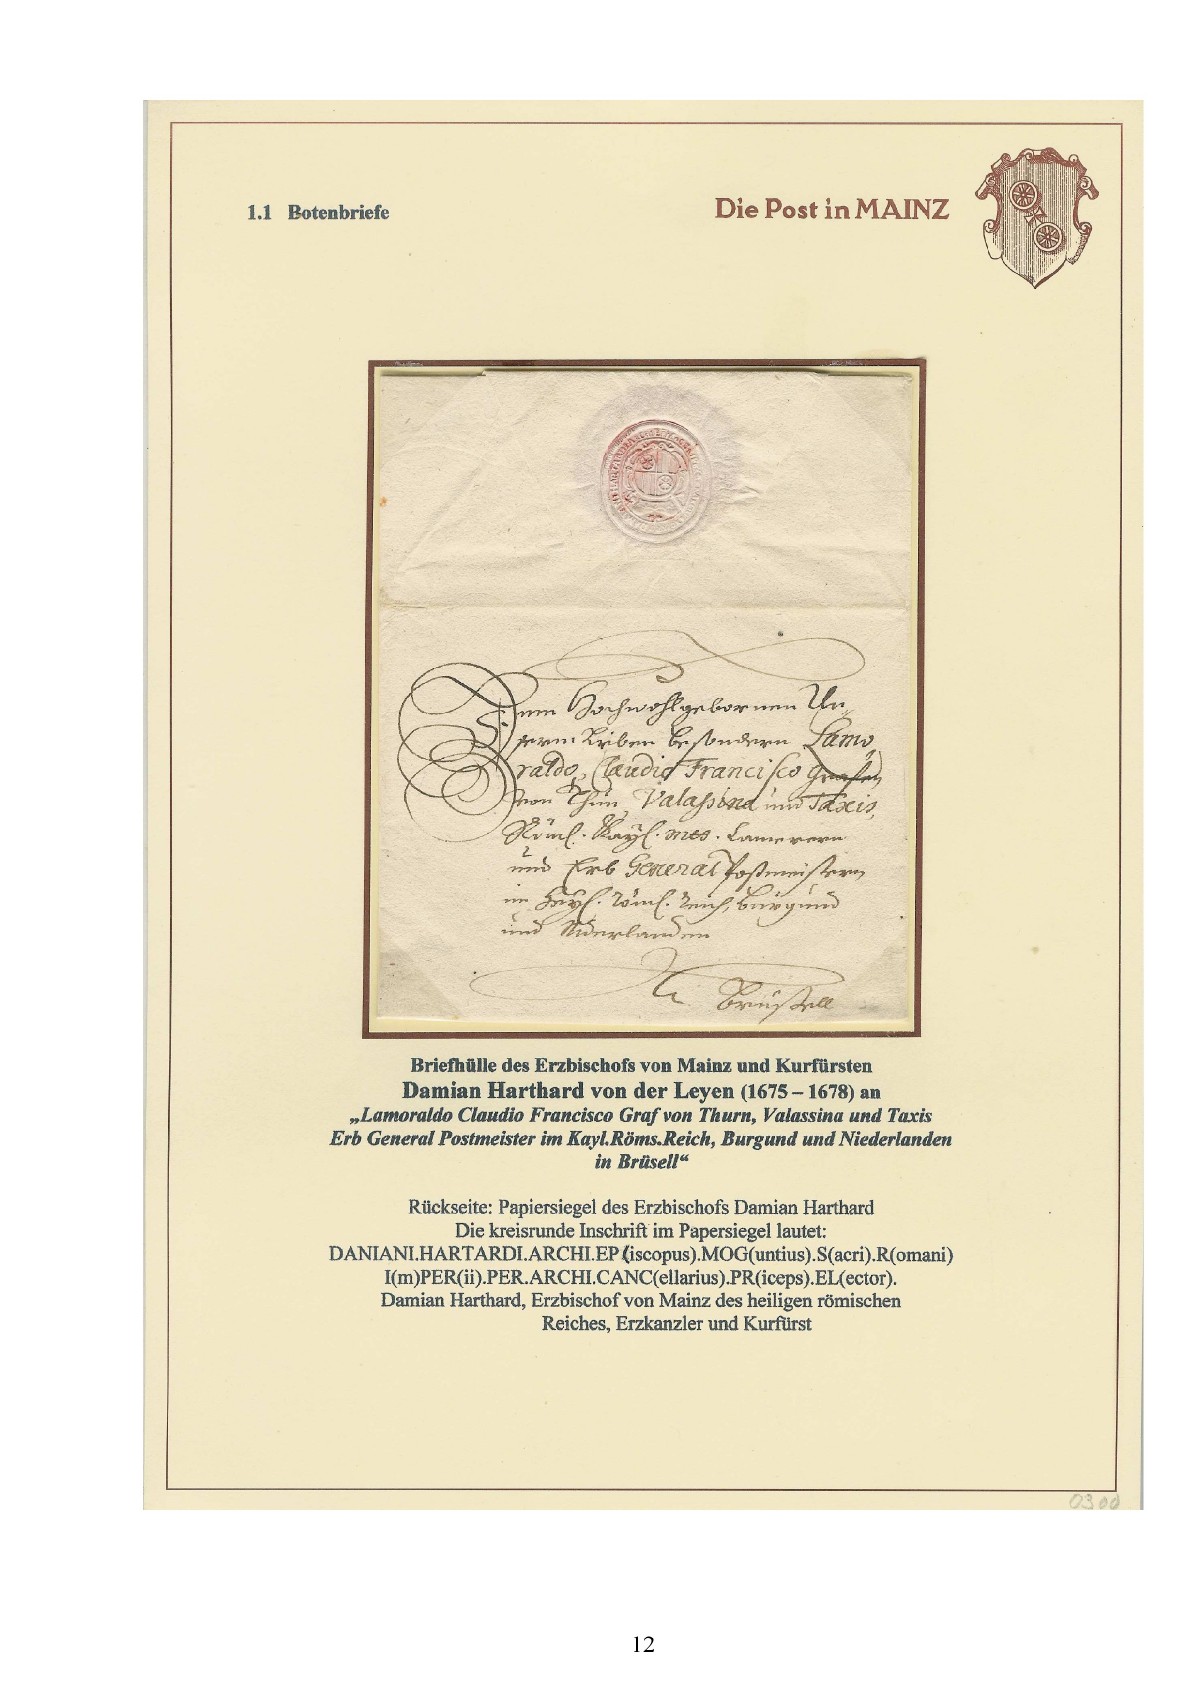 1.1 Botenbriefe
Die Post in MAINZ
Dem Hochwohlgebornen Un-
serm Lieben besondern Lamo
raldo, Claudio Francisco Grafen
von Thurn, Valassina und Taxis,
Röml. Kayl. mes. Camerern
und Erb General Postmeistern
im Heyl. Röml. Reich, Burgund
und Niderlanden
Brüssell
Briefhülle des Erzbischofs von Mainz und Kurfürsten
Damian Harthard von der Leyen (1675 – 1678) an
„Lamoraldo Claudio Francisco Graf von Thurn, Valassina und Taxis
Erb General Postmeister im Kayl.Röms.Reich, Burgund und Niederlanden
in Brüsell“
Rückseite: Papiersiegel des Erzbischofs Damian Harthard
Die kreisrunde Inschrift im Papersiegel lautet:
DANIANI.HARTARDI.ARCHI.EP(iscopus).MOG(untius).S(acri).R(omani)
I(m)PER(ii).PER.ARCHI.CANC(ellarius).PR(iceps).EL(ector).
Damian Harthard, Erzbischof von Mainz des heiligen römischen
Reiches, Erzkanzler und Kurfürst
0300
12